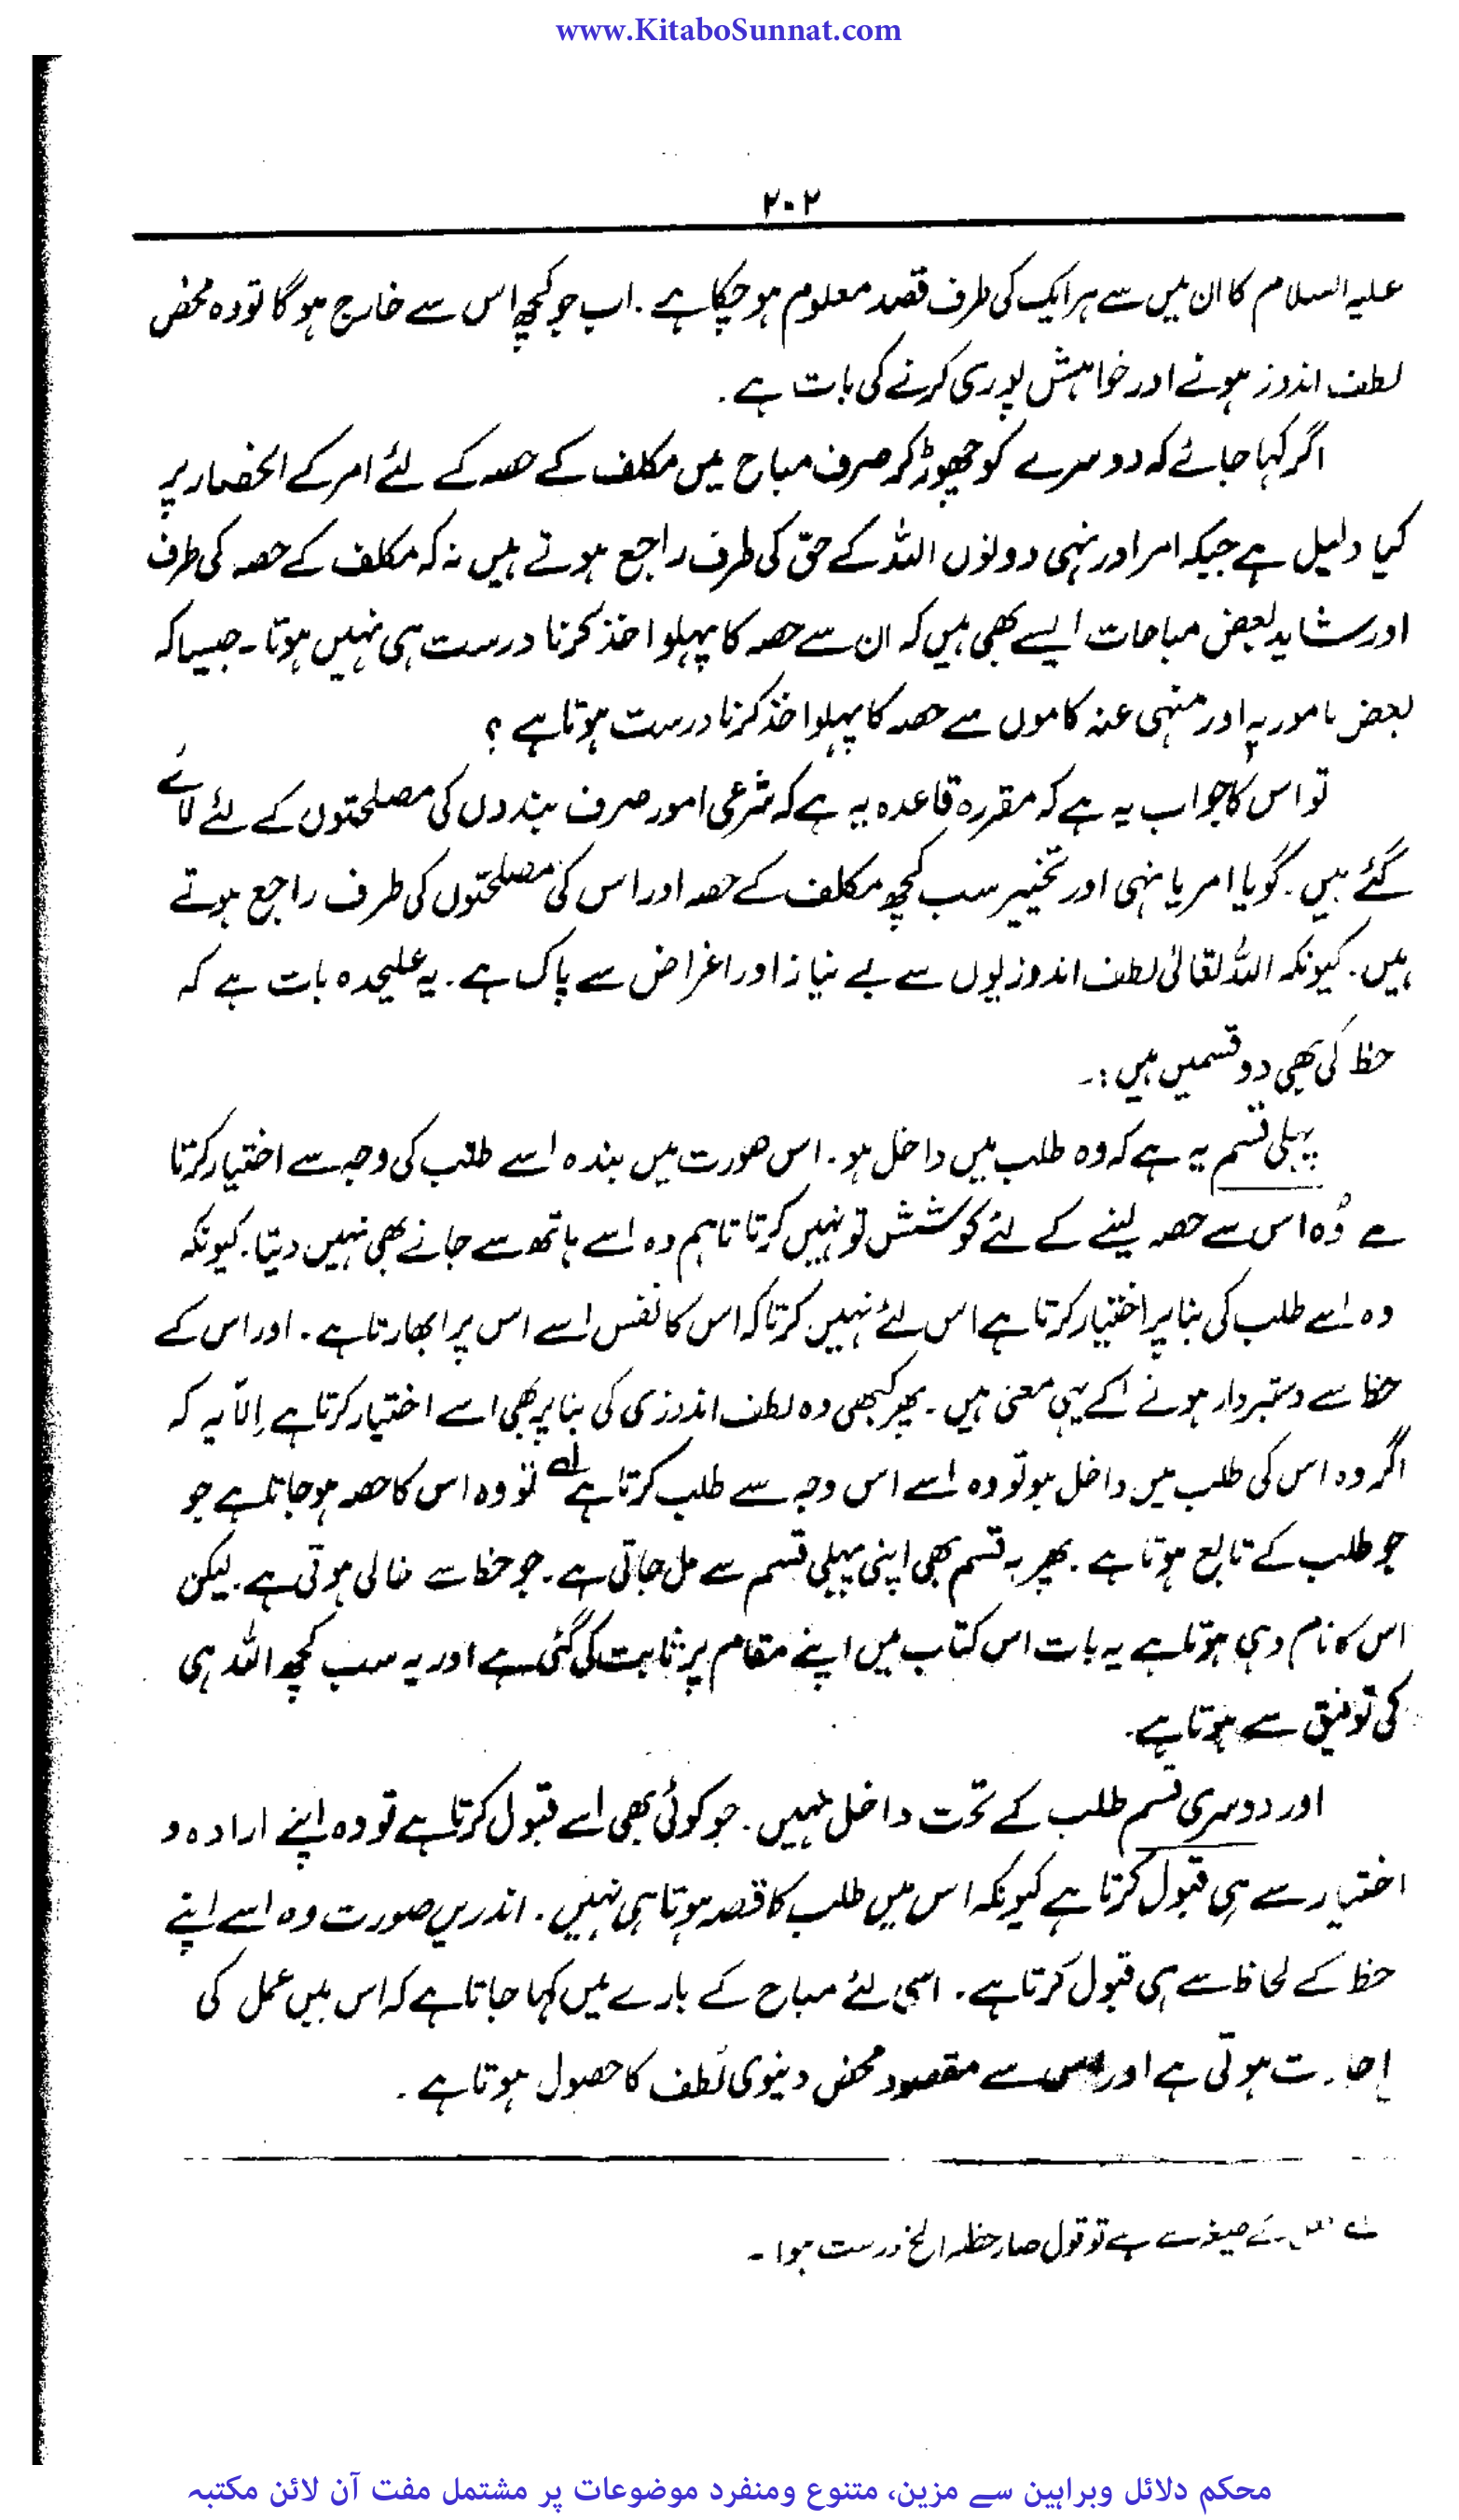 www.KitaboSunnat.com
۲۰۲
علیہ السلام کا ان میں سے ہر ایک کی طرف قصد معلوم ہو چکا ہے ۔ اب جو کچھ اس سے خارج ہو گا تو وہ محض
لطف اندوز ہونے اور خواہش پوری کرنے کی بات ہے ۔
اگر کہا جائے کہ دوسرے کو چھوڑ کر صرف مباح میں مکلف کے حصہ کے لئے امر کے انحصار پر
کیا دلیل ہے جبکہ امر اور نہی دونوں اللہ کے حق کی طرف راجع ہوتے ہیں نہ کہ مکلف کے حصہ کی طرف
اور شاید بعض مباحات ایسے بھی ہیں کہ ان سے حصہ کا پہلو اخذ کرنا درست ہی نہیں ہوتا ۔ جیسا کہ
بعض مامور بہ اور منہی عنہ کاموں سے حصہ کا پہلو اخذ کرنا درست ہوتا ہے ؟
تو اس کا جواب یہ ہے کہ مقررہ قاعدہ یہ ہے کہ شرعی امور صرف بندوں کی مصلحتوں کے لئے لائے
گئے ہیں ۔ گویا امر یا نہی اور تخییر سب کچھ مکلف کے حصہ اور اس کی مصلحتوں کی طرف راجع ہوتے
ہیں ۔ کیونکہ اللہ تعالیٰ لطف اندوزیوں سے بے نیاز اور اغراض سے پاک ہے ۔ یہ علیحدہ بات ہے کہ
حظ کی بھی دو قسمیں ہیں :۔
پہلی قسم یہ ہے کہ وہ طلب میں داخل ہو ۔ اس صورت میں بندہ اسے طلب کی وجہ سے اختیار کرتا
ہے وُہ اس سے حصہ لینے کے لئے کوشش تو نہیں کرتا تاہم وہ اسے ہاتھ سے جانے بھی نہیں دیتا ۔ کیونکہ
وہ اسے طلب کی بنا پر اختیار کرتا ہے اس لئے نہیں کرتا کہ اس کا نفس اسے اس پر ابھارتا ہے ۔ اور اس کے
حظ سے دستبردار ہونے کے یہی معنی ہیں ۔ پھر کبھی وہ لطف اندوزی کی بنا پر بھی اسے اختیار کرتا ہے اِلّا یہ کہ
اگر وہ اس کی طلب میں داخل ہو تو وہ اسے اس وجہ سے طلب کرتا ہے لہ تو وہ اس کا حصہ ہو جاتا ہے جو
جو طلب کے تابع ہوتا ہے ۔ پھر یہ قسم بھی اپنی پہلی قسم سے مل جاتی ہے ۔ جو حظ سے خالی ہوتی ہے ۔ لیکن
اس کا نام وہی ہوتا ہے یہ بات اس کتاب میں اپنے مقام پر ثابت کی گئی ہے اور یہ سب کچھ اللہ ہی
کی توفیق سے ہوتا ہے ۔
اور دوسری قسم طلب کے تحت داخل نہیں ۔ جو کوئی بھی اسے قبول کرتا ہے تو وہ اپنے ارادہ و
اختیار سے ہی قبول کرتا ہے کیونکہ اس میں طلب کا قصد ہوتا ہی نہیں ۔ اندریں صورت وہ اسے اپنے
حظ کے لحاظ سے ہی قبول کرتا ہے ۔ اسی لئے مباح کے بارے میں کہا جاتا ہے کہ اس میں عمل کی
اجازت ہوتی ہے اور اس سے مقصود محض دنیوی لُطف کا حصول ہوتا ہے ۔
لہ کے صیغہ سے ہے تو قول صار حظہ الخ درست ہوا ۔
محکم دلائل وبراہین سے مزین، متنوع ومنفرد موضوعات پر مشتمل مفت آن لائن مکتبہ